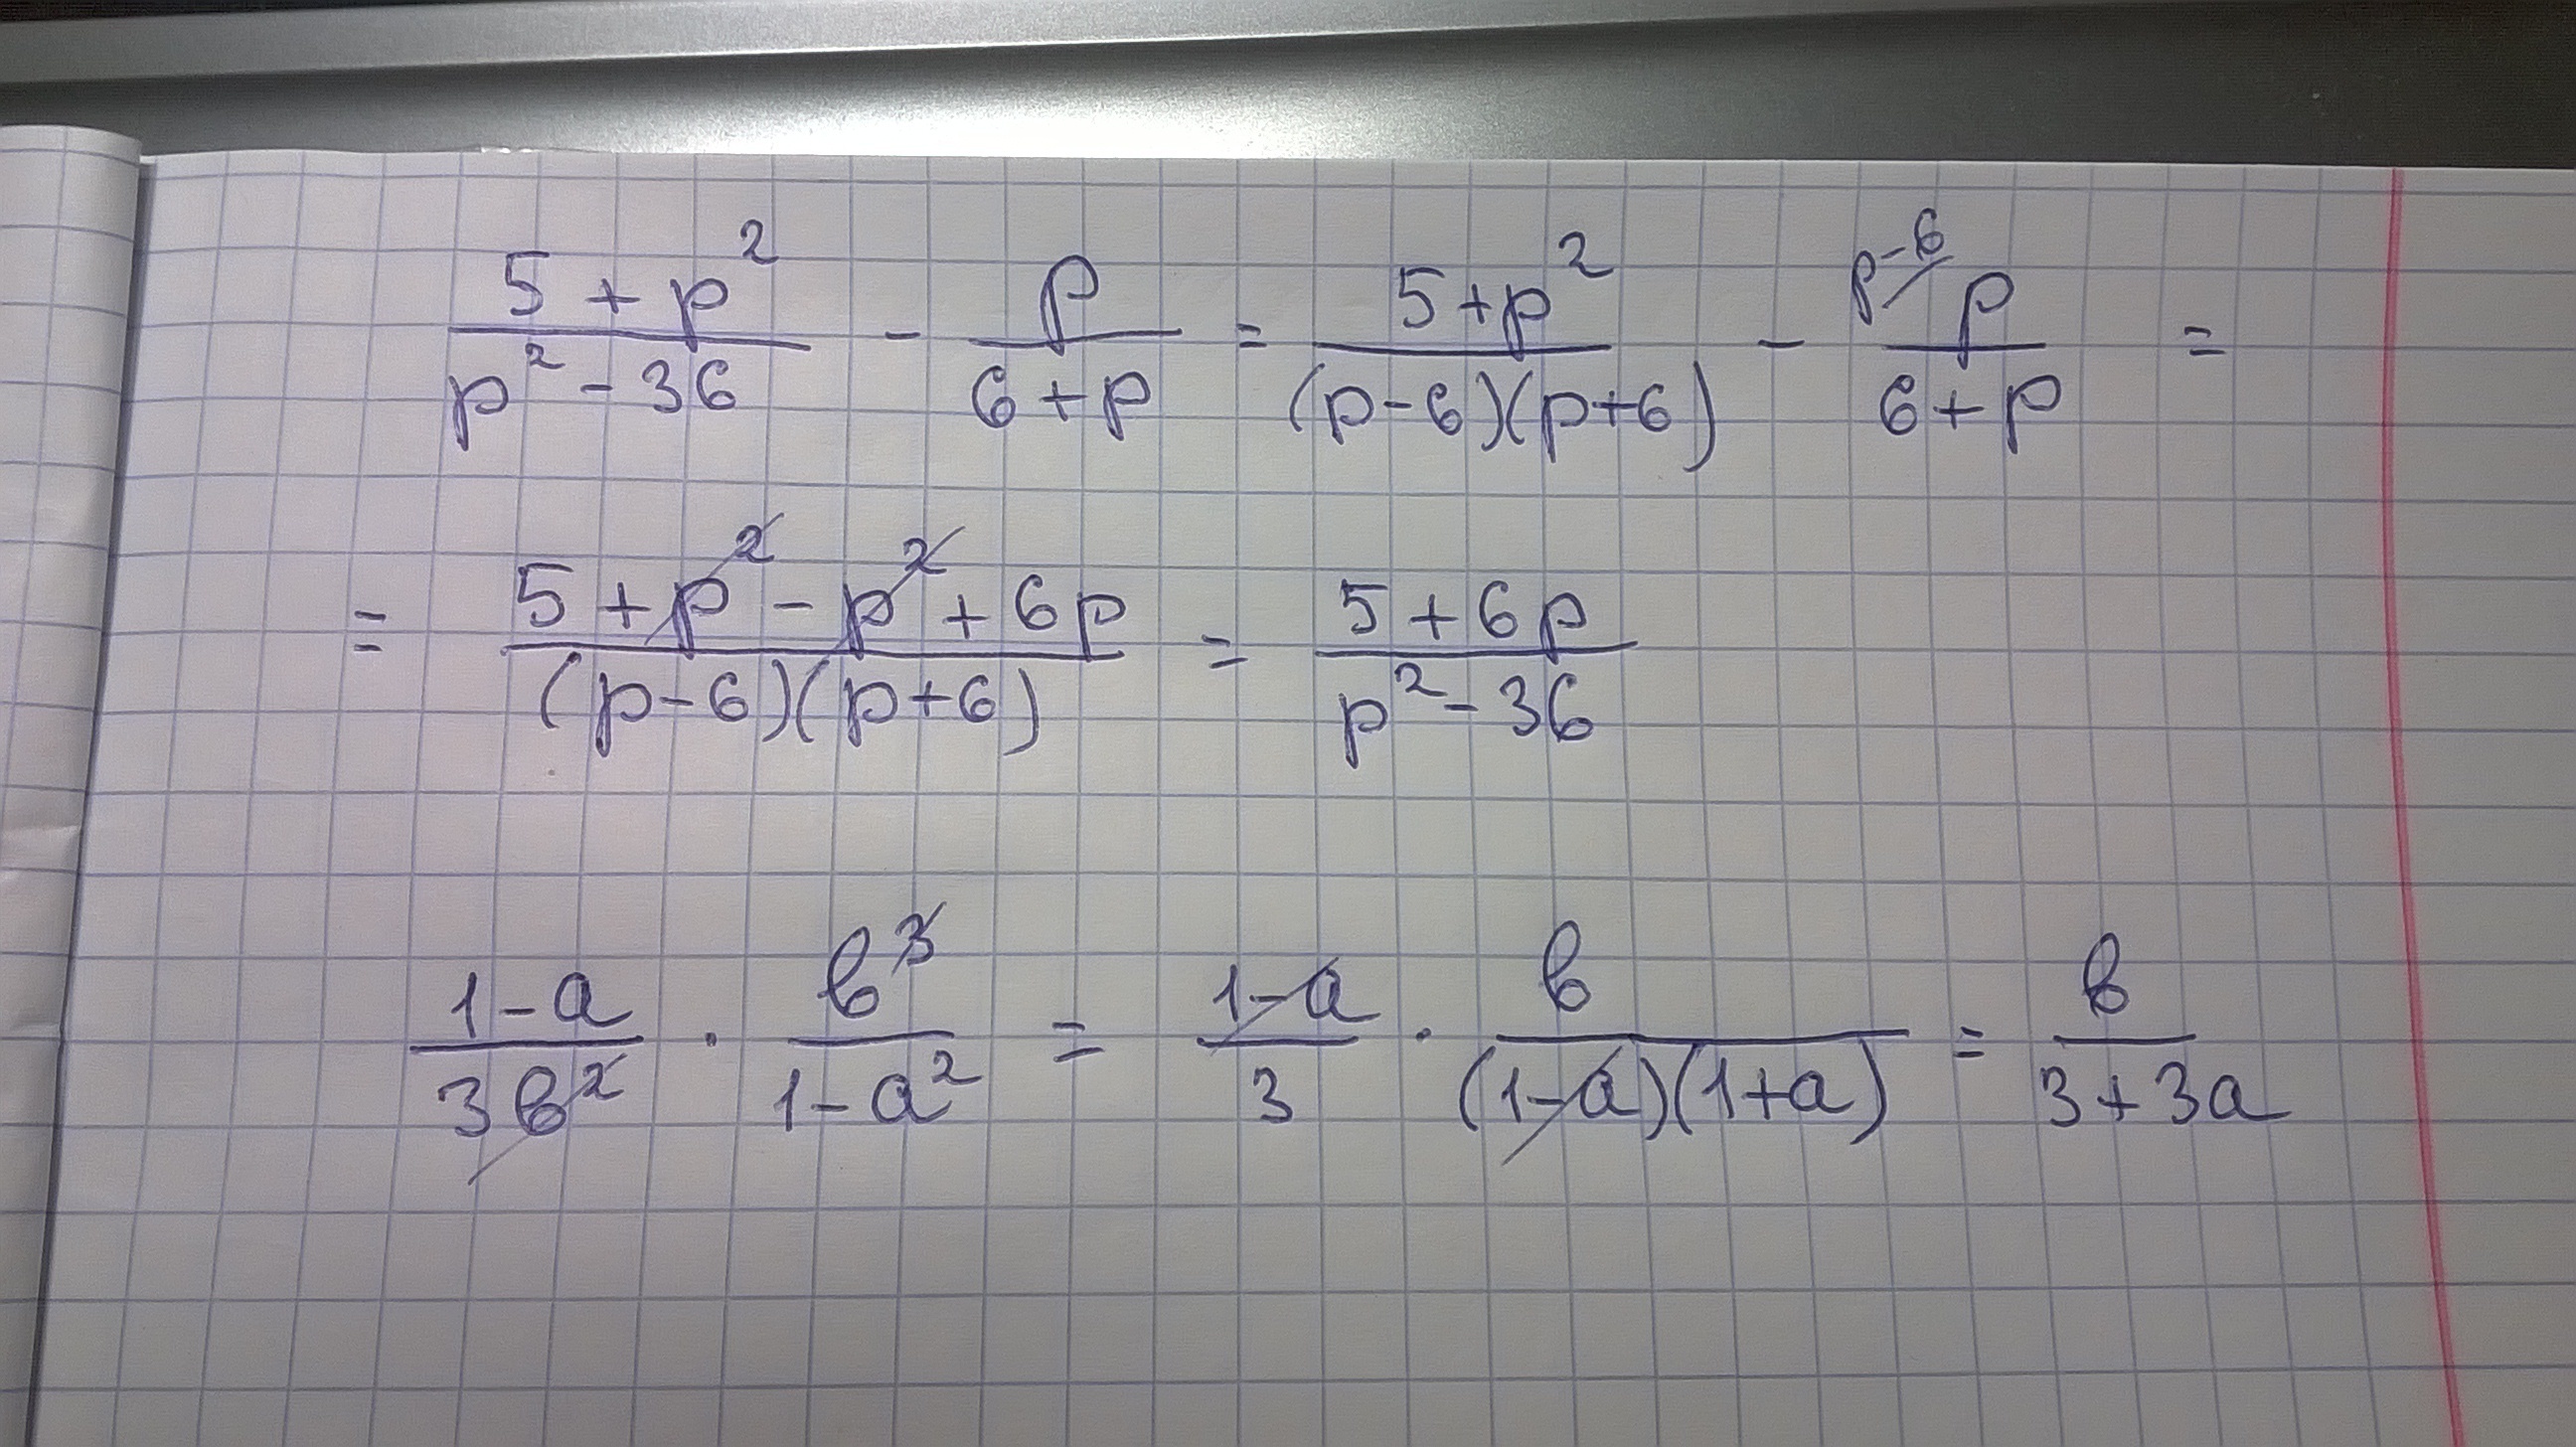 \frac{5+p^2}{p^2-36} - \frac{p}{6+p} = \frac{5+p^2}{(p-6)(p+6)} - \frac{^{p-6/}p}{6+p} =
= \frac{5+p^2-p^2+6p}{(p-6)(p+6)} = \frac{5+6p}{p^2-36}
\frac{1-a}{3в^2} \cdot \frac{в^3}{1-a^2} = \frac{1-a}{3} \cdot \frac{в}{(1-a)(1+a)} = \frac{в}{3+3a}